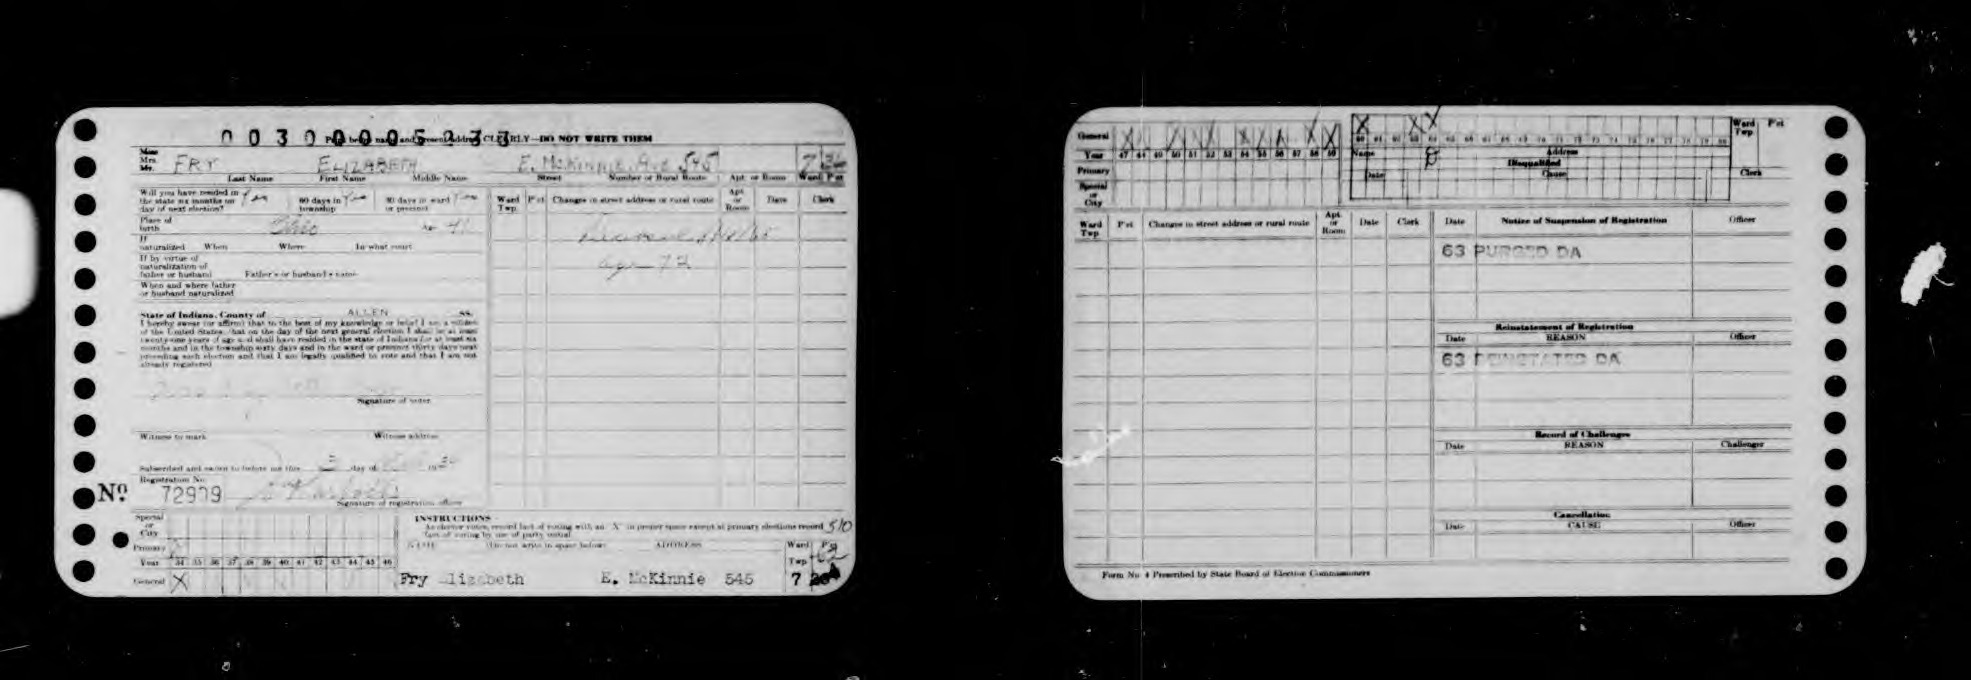 00300005233
Print both name and present address CLEARLY—DO NOT WRITE THEM
Miss
Mrs. FRY ELIZABETH E. McKinnie Ave 545 7
Mr.
Last Name First Name Middle Name Street Number or Rural Route Apt. or Room Ward P'ct
Will you have resided in
the state six months on Yes 60 days in Yes 30 days in ward Yes
day of next election? township or precinct
Ward Twp. P'ct Changes in street address or rural route Apt. or Room Date Clerk
Place of
birth Ohio 41
age 72
If
naturalized When Where In what court
If by virtue of
naturalization of
father or husband Father's or husband's name
When and where father
or husband naturalized
State of Indiana, County of ALLEN ss.
I hereby swear (or affirm) that to the best of my knowledge or belief I am a citizen
of the United States, that on the day of the next general election I shall be at least
twenty-one years of age and shall have resided in the state of Indiana for at least six
months and in the township sixty days and in the ward or precinct thirty days next
preceding such election and that I am legally qualified to vote and that I am not
already registered
Signature of voter
Witness to mark Witness address
Subscribed and sworn to before me this 3 day of
Registration No.
Nº 72979
Signature of registration officer
Special
or
City
Primary
Year 34 35 36 37 38 39 40 41 42 43 44 45 46
General X
INSTRUCTIONS
As elector votes, record fact of voting with an "X" in proper space except at primary elections record 510
fact of voting by use of party initial
NAME (Do not write in space below) ADDRESS Ward Twp P'ct
Fry Elizabeth E. McKinnie 545 7
General X X X X X X X X X
Year 47 48 49 50 51 52 53 54 55 56 57 58 59
Primary
Special
or
City
X X X
60 61 62 63 64 65 66 67 68 69 70 71 72 73 74 75 76 77 78 79 80
Ward Twp P'ct
Name Address
Disqualified
Date Cause Clerk
Ward Twp P'ct Changes in street address or rural route Apt. or Room Date Clerk
Date Notice of Suspension of Registration Officer
63 PURGED DA
Reinstatement of Registration
Date REASON Officer
63 REINSTATED DA
Record of Challenges
Date REASON Challenger
Cancellation
Date CAUSE Officer
Form No. 4 Prescribed by State Board of Election Commissioners